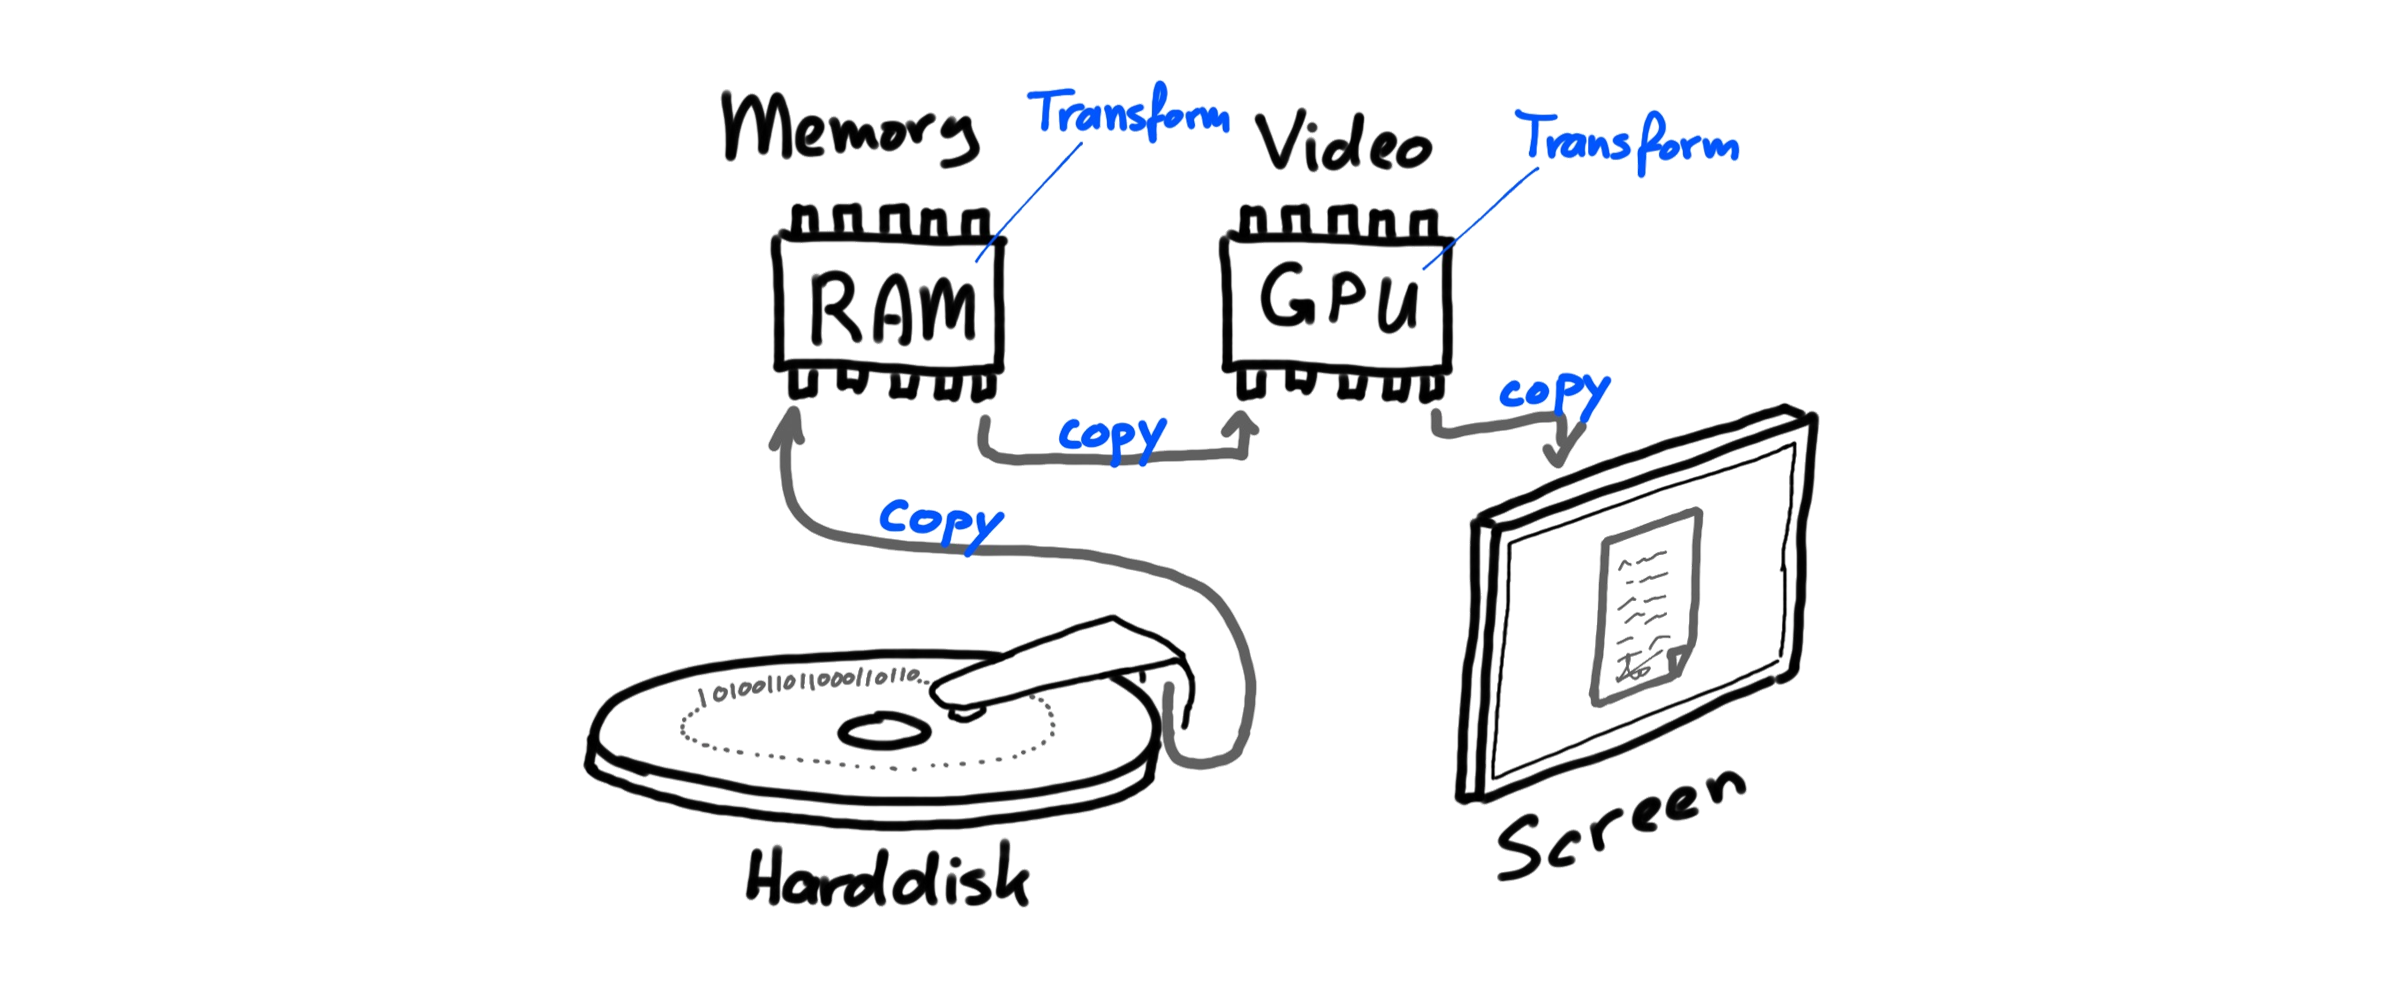 Memory
Transform
Video
Transform
RAM
GPU
copy
copy
copy
1010011011000110110..
Harddisk
Screen